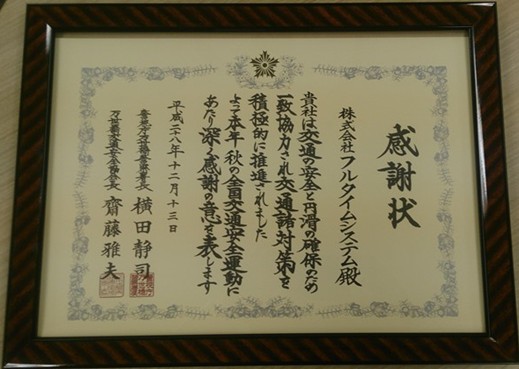 感謝状
株式会社フルタイムシステム殿
貴社は交通の安全と円滑の確保のため
一致協力され交通諸対策を
積極的に推進されました
よって本年秋の全国交通安全運動に
あたり深く感謝の意を表します
平成二八年十二月十三日
警視庁万世橋警察署長 横田静司
万世橋交通安全協会長 齋藤雅夫